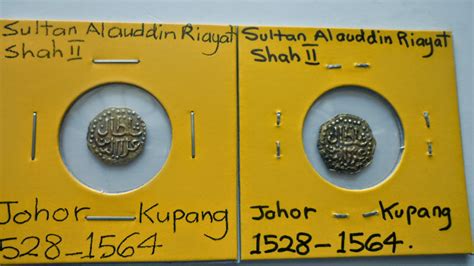 Sultan Alauddin Riayat
Shah II
Johor Kupang
528-1564
Sultan Alauddin Riayat
Shah II
Johor Kupang
1528-1564.